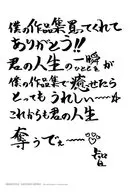 僕の作品集買ってくれて
ありがとう!!
君の人生の一瞬
ひととき
が
僕の作品集で癒せたら
とってもうれしい〜☆
これからも君の人生
奪うでぇ〜